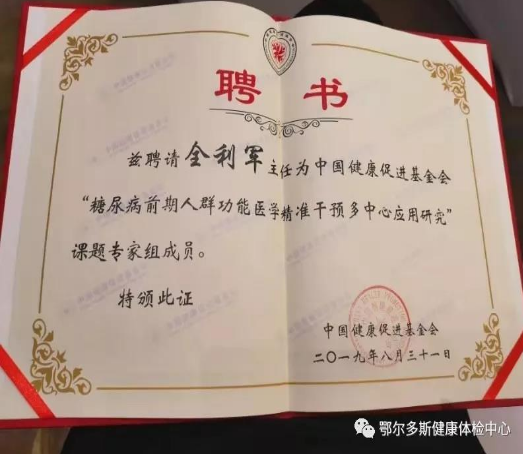 聘书
兹聘请全利军主任为中国健康促进基金会
“糖尿病前期人群功能医学精准干预多中心应用研究”
课题专家组成员。
特颁此证
中国健康促进基金会
二〇一九年八月三十一日
鄂尔多斯健康体检中心